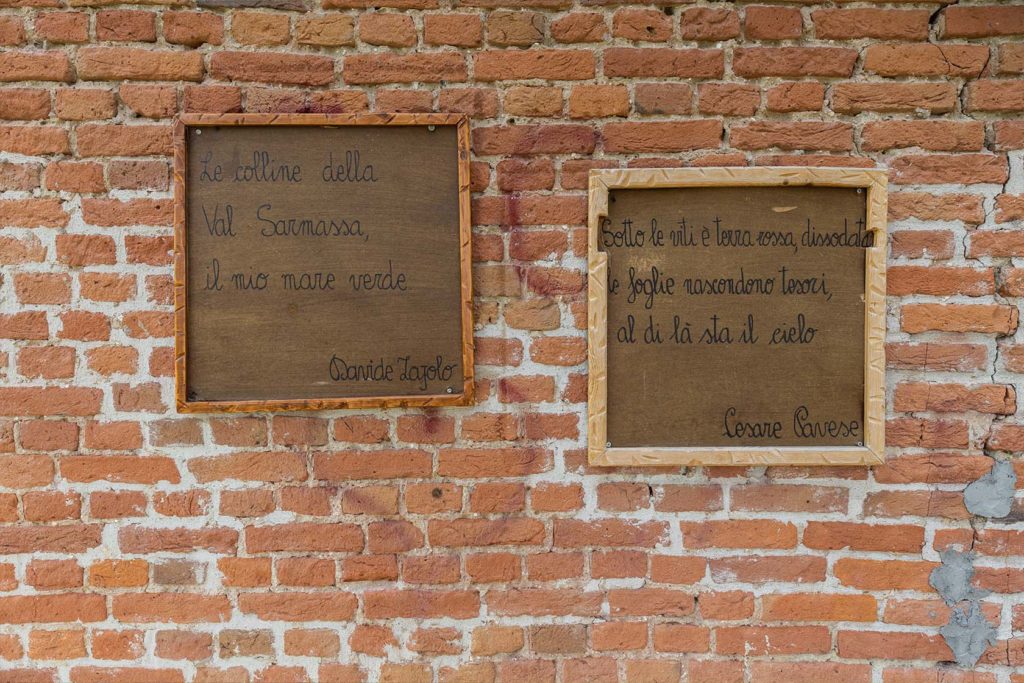 Le colline della
Val Sarmassa,
il mio mare verde
Davide Lajolo
Sotto le viti è terra rossa, dissodata
le foglie nascondono tesori,
al di là sta il cielo
Cesare Pavese